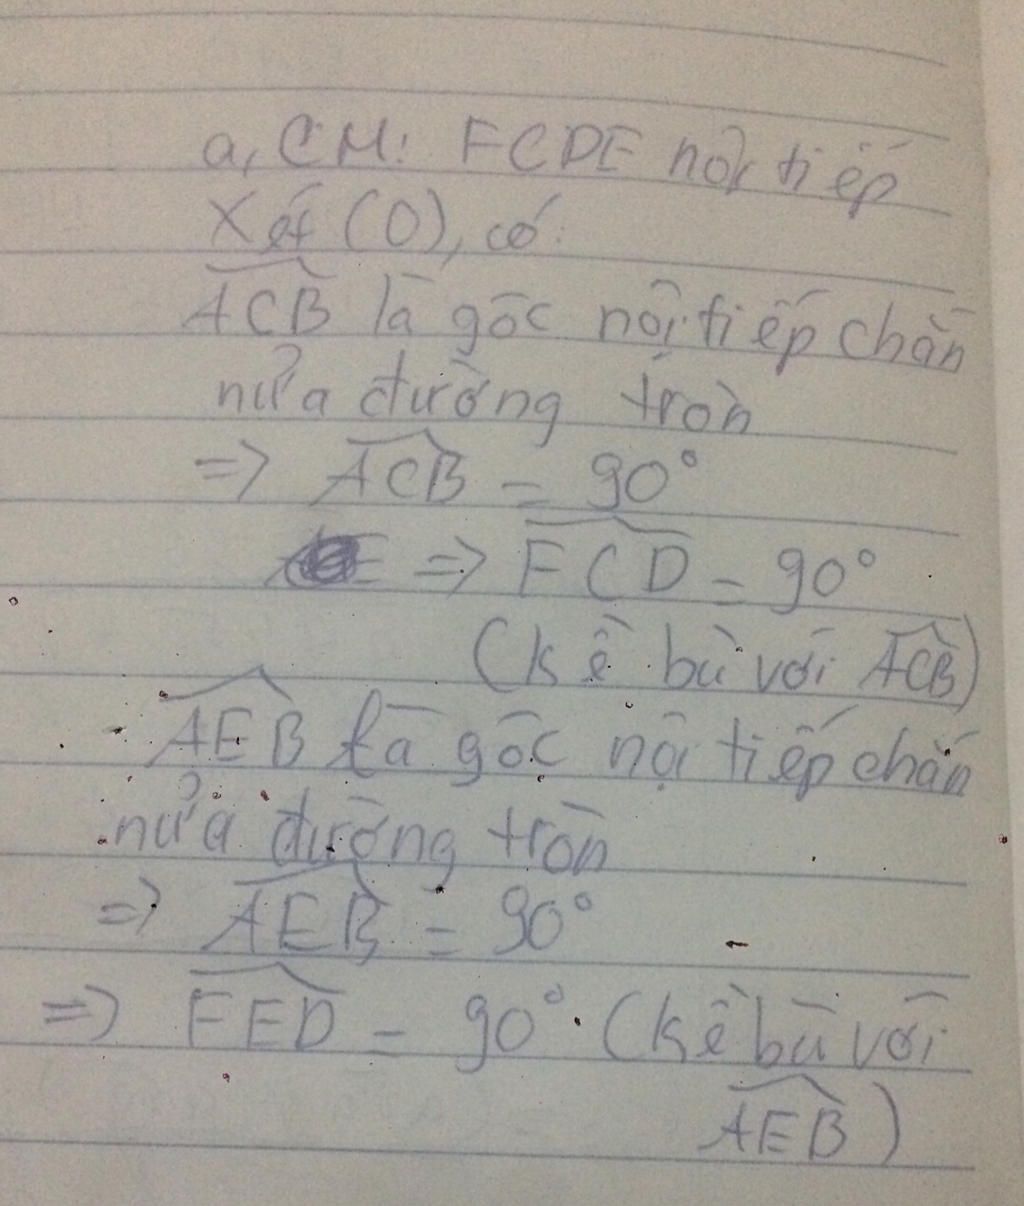 a, CM: FCDE nội tiếp
Xét (O), có:
ACB là góc nội tiếp chắn
nửa đường tròn
=> ACB = 90°
=> FCD = 90°
(kề bù với ACB)
AEB là góc nội tiếp chắn
nửa đường tròn
=> AEB = 90°
=> FED = 90° (kề bù với
AEB)